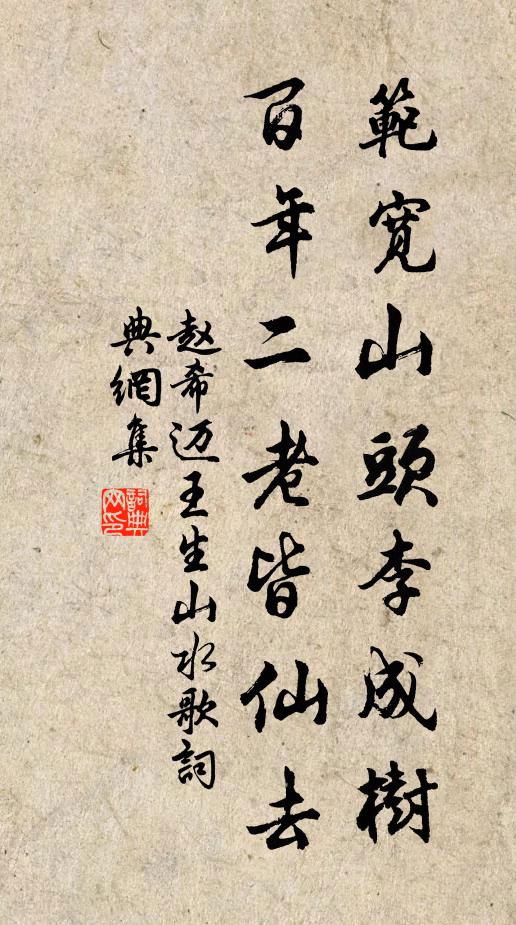 範寬山頭李成樹
百年二老皆仙去
赵希迈王生山水歌詞
典網集
詞典网印